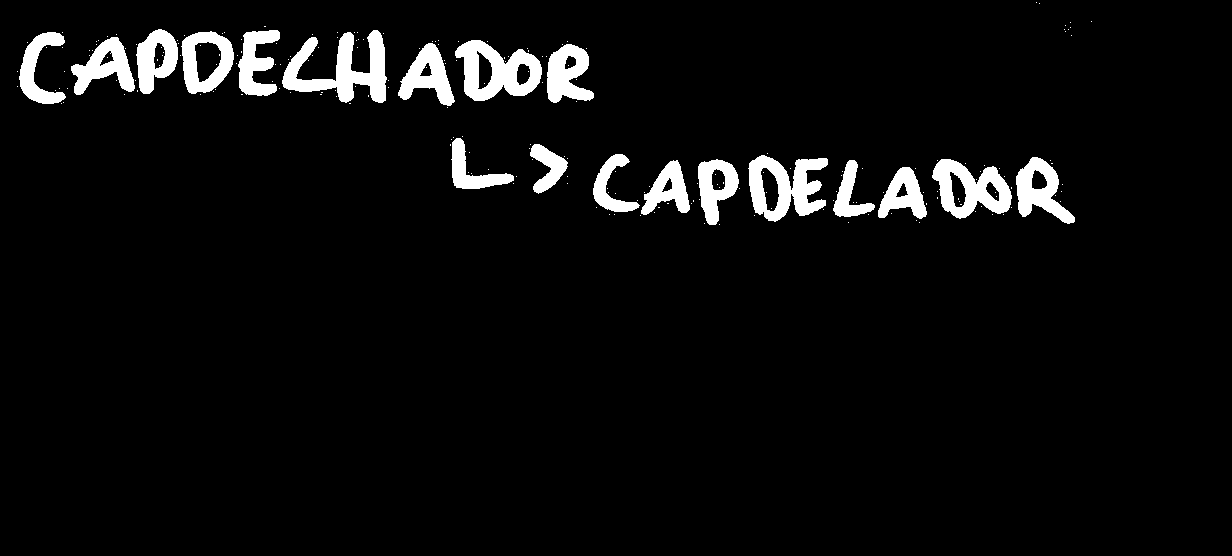 CAPDELHADOR
↳ CAPDELADOR